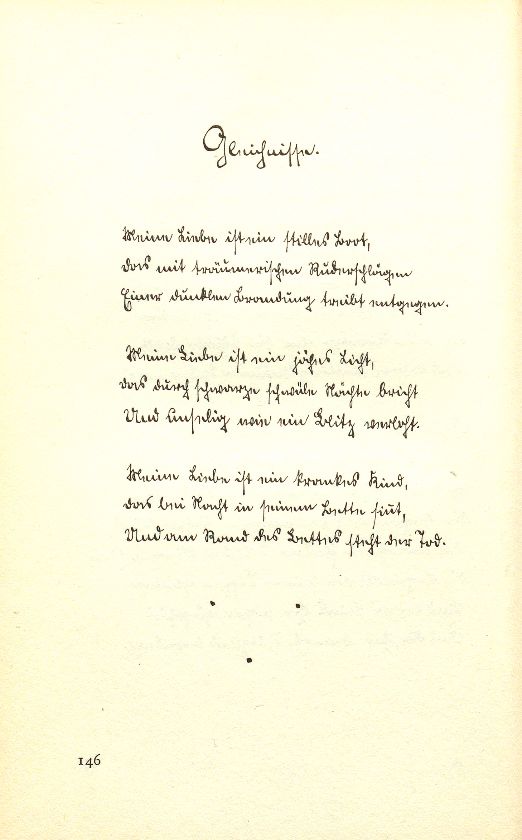 Gleichnisse.
Meine Liebe ist ein stilles Boot,
das mit träumerischen Ruderschlägen
Einer dunklen Brandung treibt entgegen.
Meine Liebe ist ein jähes Licht,
das durch schwarze schwüle Nächte bricht
Und unselig wie ein Blitz verloht.
Meine Liebe ist ein krankes Kind,
das bei Nacht in seinem Bette sin̄t,
Und am Rand des Bettes steht der Tod.
146